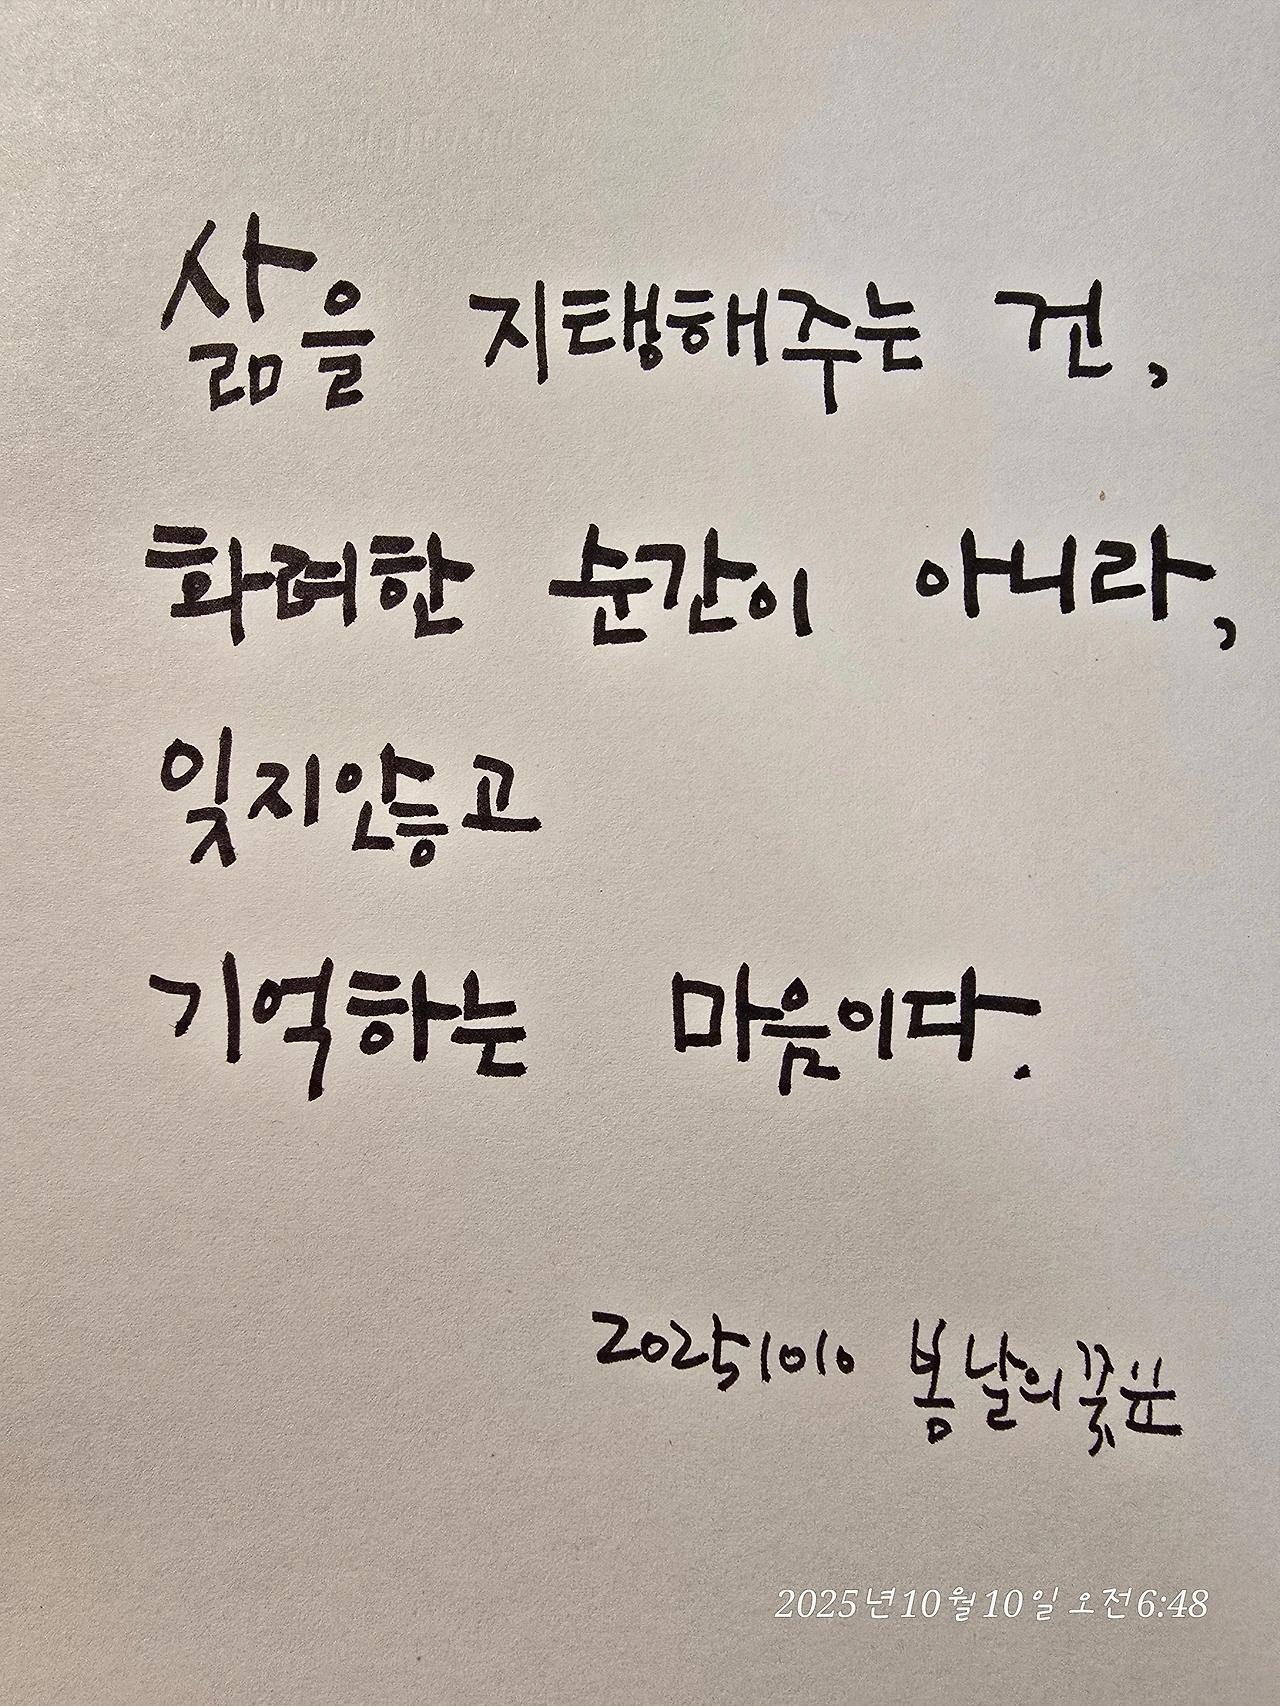 삶을 지탱해주는 건,
화려한 순간이 아니라,
잊지안흥고
기억하는 마음이다.
20251010 봄날의꽃
2025년10월10일 오전6:48